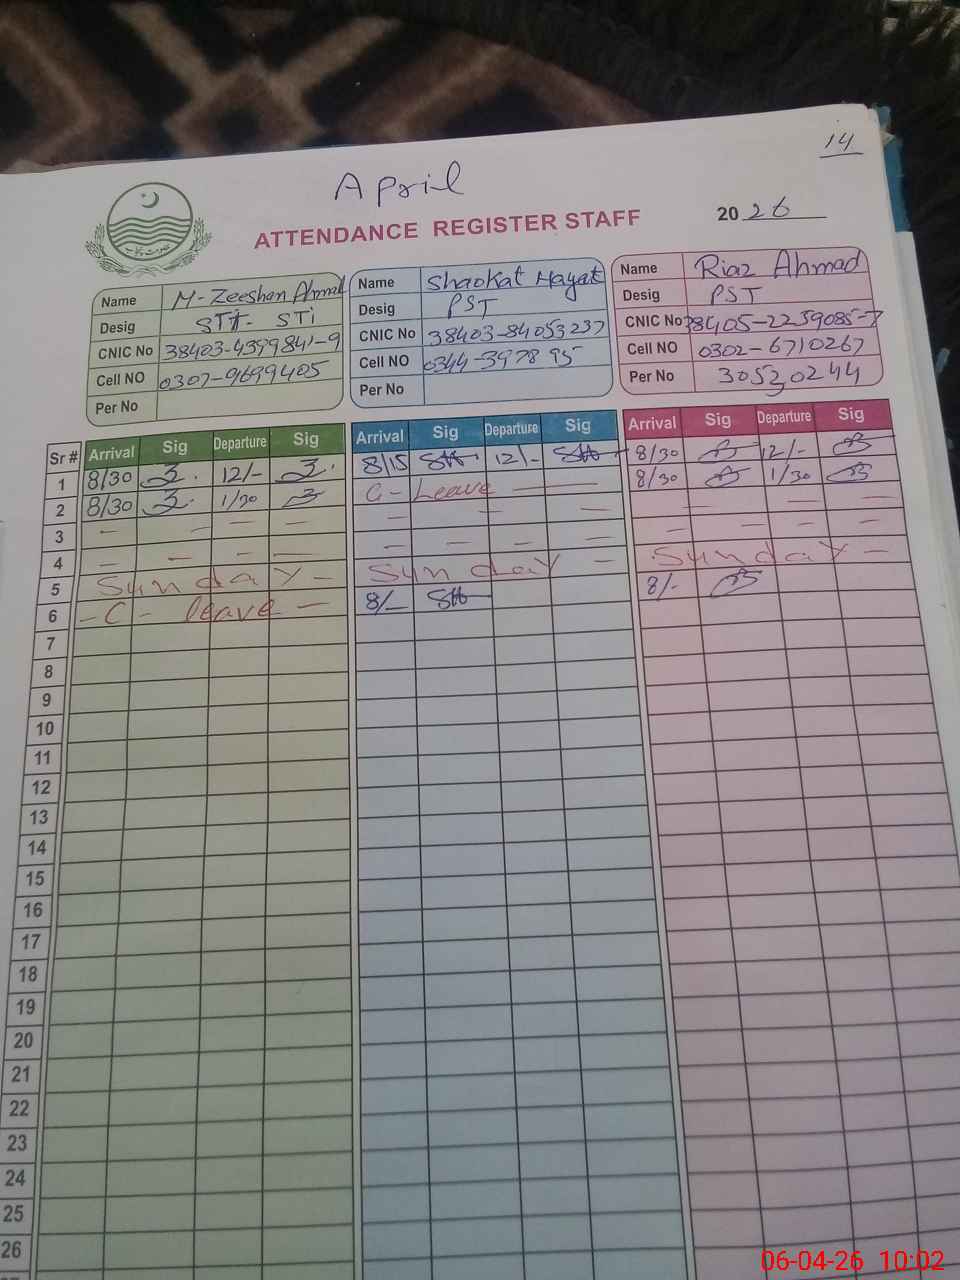 14
April
ATTENDANCE REGISTER STAFF
20 26
حکومت پنجاب
Name M-Zeeshan Ahmad
Desig STI
CNIC No 38403-4399841-9
Cell NO 0307-9699405
Per No
Name Shaokat Hayat
Desig PST
CNIC No 38403-84053237
Cell NO 0344-3978 95
Per No
Name Riaz Ahmad
Desig PST
CNIC No 38405-2239085-7
Cell NO 0302-6710267
Per No 30530244
Sr # Arrival Sig Departure Sig Arrival Sig Departure Sig Arrival Sig Departure Sig
1 8/30 12/- 8/15 12/- 8/30 12/-
2 8/30 1/30 C-Leave 8/30 1/30
3 - - - - - - - - - - - -
4 - - - - - - - - - - - -
5 Sunday - Sunday - Sunday -
6 - C - leave - 8/- 8/-
7
8
9
10
11
12
13
14
15
16
17
18
19
20
21
22
23
24
25
26
06-04-26 10:02